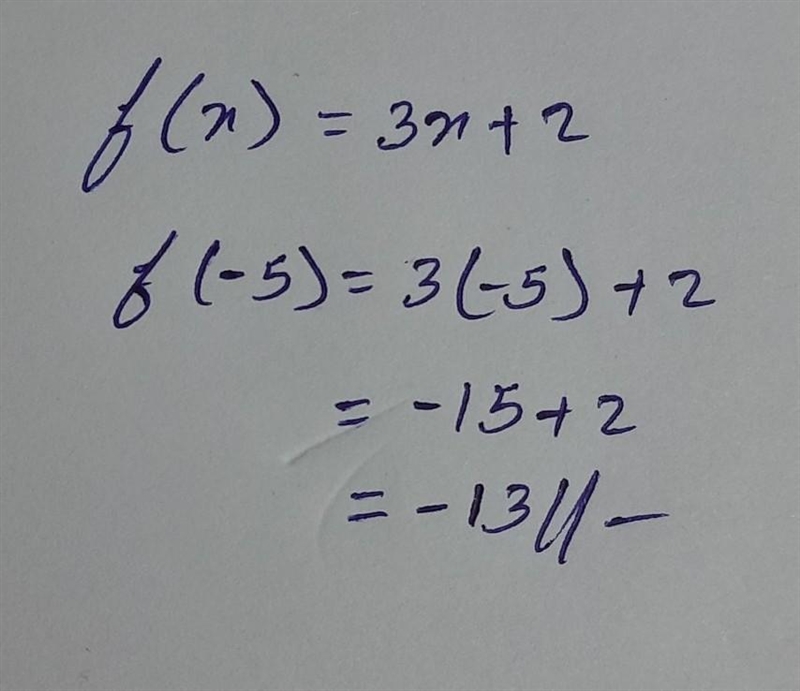 f(x) = 3x + 2
f(-5) = 3(-5) + 2
= -15 + 2
= -13 // -